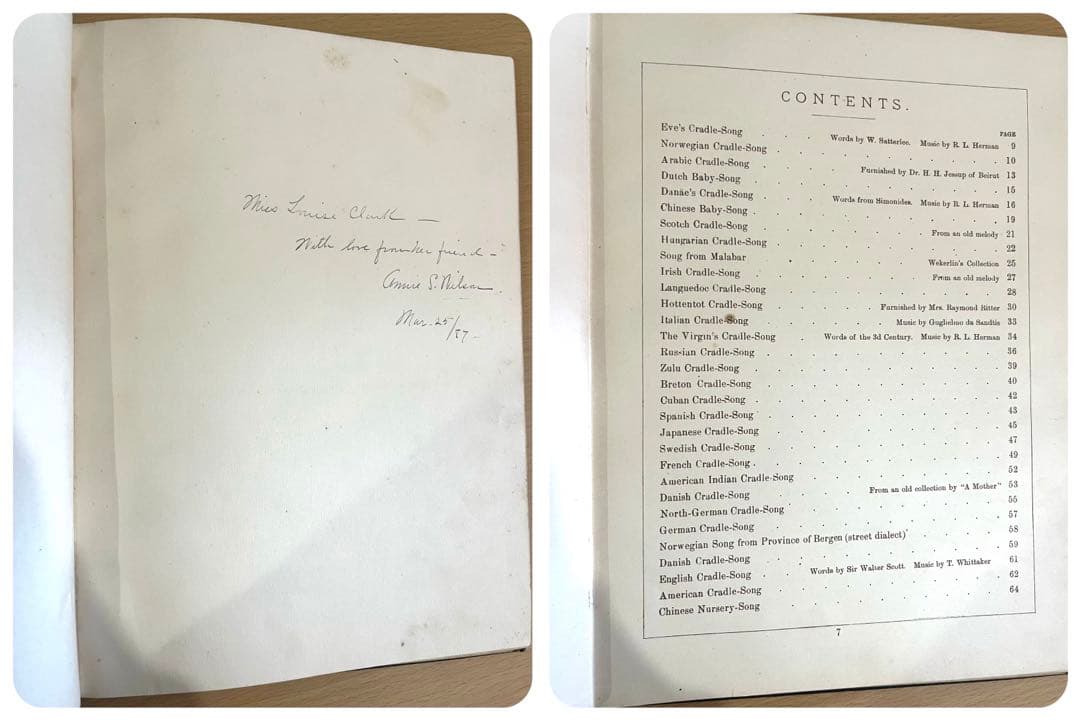 Miss Louise Clark —
With love from her friend —
Annie S. Nilson.
Mar. 25/87 -
CONTENTS.
PAGE
Eve's Cradle-Song . . . Words by W. Satterlee. Music by R. L. Herman 9
Norwegian Cradle-Song . . . . . . . . 10
Arabic Cradle-Song . . . Furnished by Dr. H. H. Jessup of Beirut 13
Dutch Baby-Song . . . . . . . . 15
Danaë's Cradle-Song . . . Words from Simonides. Music by R. L. Herman 16
Chinese Baby-Song . . . . . . . . 19
Scotch Cradle-Song . . . . . From an old melody 21
Hungarian Cradle-Song . . . . . . . . 22
Song from Malabar . . . . Wekerlin's Collection 25
Irish Cradle-Song . . . . . From an old melody 27
Languedoc Cradle-Song . . . . . . . . 28
Hottentot Cradle-Song . . . . Furnished by Mrs. Raymond Ritter 30
Italian Cradle-Song . . . . Music by Guglielmo da Sandtis 33
The Virgin's Cradle-Song . Words of the 3d Century. Music by R. L. Herman 34
Russian Cradle-Song . . . . . . . . 36
Zulu Cradle-Song . . . . . . . . 39
Breton Cradle-Song . . . . . . . . 40
Cuban Cradle-Song . . . . . . . . 42
Spanish Cradle-Song . . . . . . . . 43
Japanese Cradle-Song . . . . . . . . 45
Swedish Cradle-Song . . . . . . . . 47
French Cradle-Song . . . . . . . . 49
American Indian Cradle-Song . . . . . . . 52
Danish Cradle-Song . . . From an old collection by "A Mother" 53
North-German Cradle-Song . . . . . . . 55
German Cradle-Song . . . . . . . . 57
Norwegian Song from Province of Bergen (street dialect) . . . 58
Danish Cradle-Song . . . . . . . . 59
English Cradle-Song . . Words by Sir Walter Scott. Music by T. Whittaker 61
American Cradle-Song . . . . . . . . 62
Chinese Nursery-Song . . . . . . . . 64
7